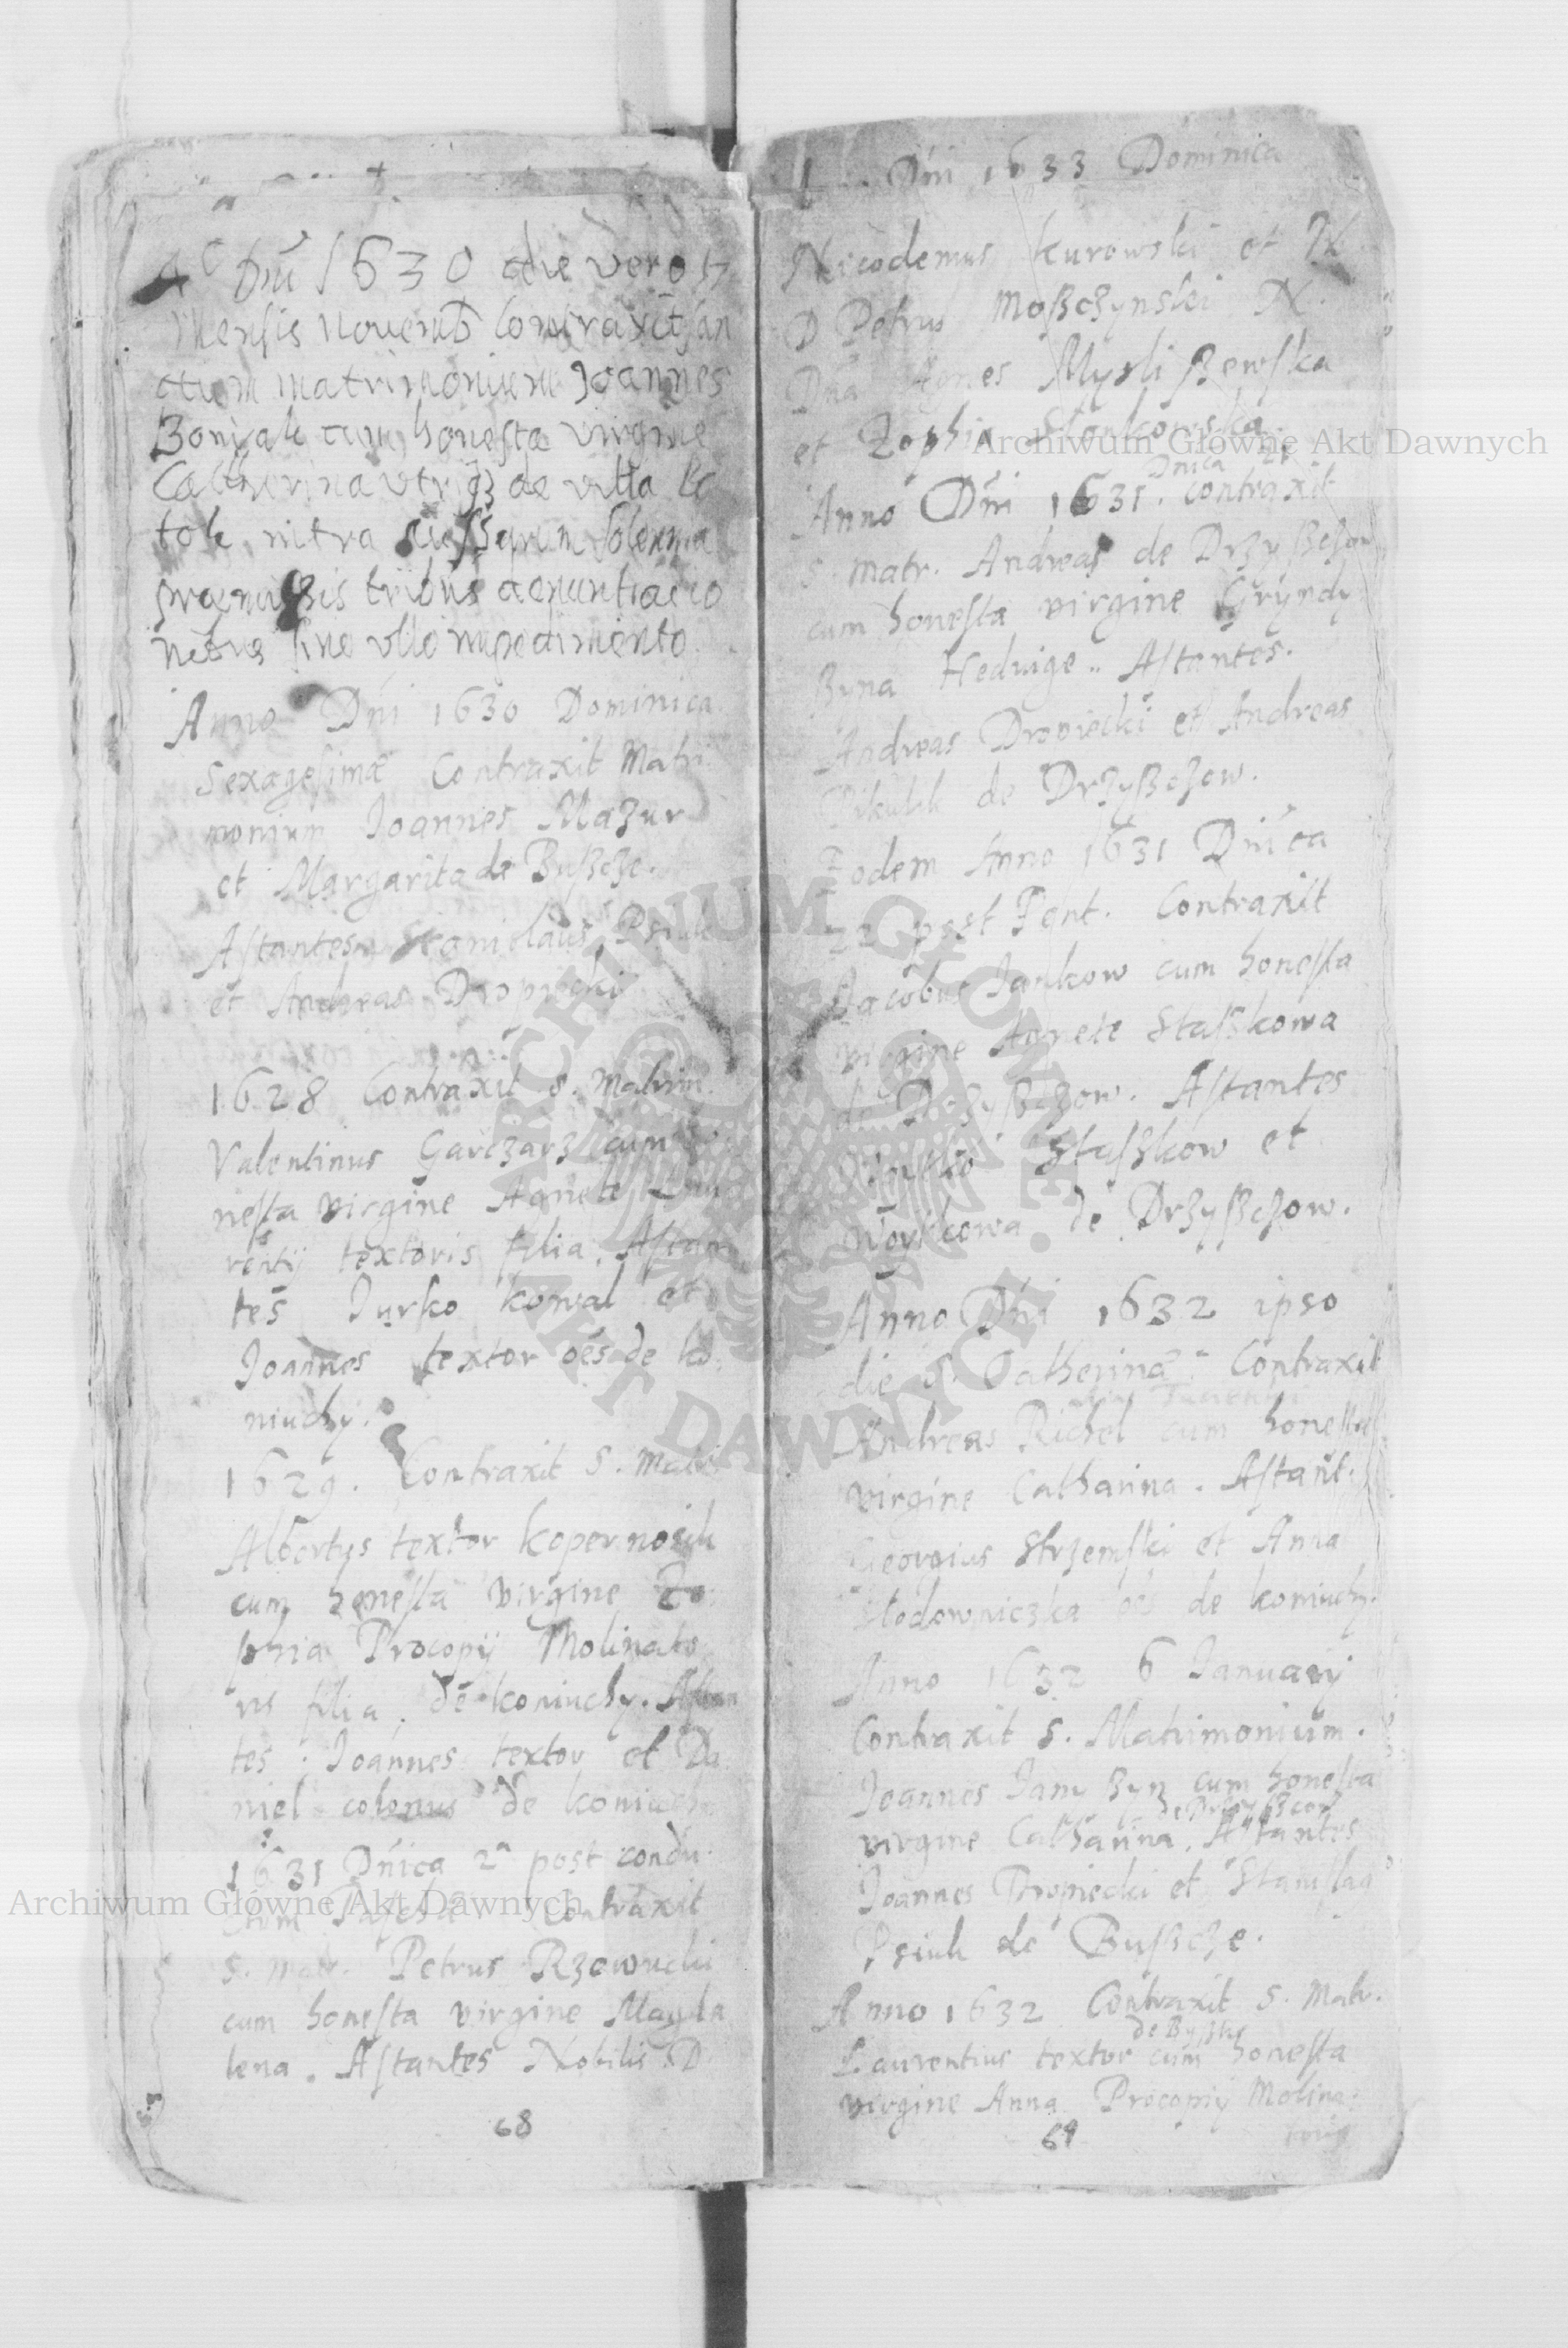 Aº Dni 1630 die vero 17
Mensis Novemb Contraxit san
ctum matrimonium Joannes
Boniak cum honesta virgine
Catherina utriq3 de villa
tok intra solemnia
praemissis tribus denuntiatio
nibus sine ullo impedimento.
Anno Dni 1630 Dominica
Sexagesimæ Contraxit Matri
monium Joannes Mazur
et Margarita de Bußcze.
Astantes Stanislaus Psiuk
et Andreas Dropiecki
1628 Contraxit S. Matrim.
Valentinus Garczarz cum
nesta virgine Agnete Lau
rentij textoris filia. Astan
tes Jurko Kowal et
Joannes textor oēs de Ko:
niuchy.
1629. Contraxit S. Matr.
Albertus textor Kopernosik
cum honesta virgine Zo:
phia Procopij Molinato
ris filia, de Koniuchy. Astan
tes: Joannes textor et Da:
niel colonus de Koniuchy
1631 Dnica 2ª post condu:
ctum Paschæ Contraxit
S. Matr. Petrus Rzewucki
cum honesta virgine Magda
lena. Astantes Nobilis D
68
Dni 1633 Dominica
Nicodemus Kurowski et N
D Petrus Moßczynski N.
Dna Agnes Mysli ßewska
et Zophia
Dnica
Anno Dni 1631. Contraxit
S. matr. Andreas de Drzyßczow
cum honesta virgine Gryndy
ßyna Hedvige.. Astantes.
Andreas Dropiecki et Andreas
Pikulik de Drzyßczow.
Eodem Anno 1631 Dnica
22 post Pent. Contraxit
Jacobus Jankow cum honesta
virgine Agnete Staßkowa
de Drzyßczow. Astantes
Staßkow et
Woytkowa de Drzyßczow.
Anno Dni 1632 ipso
die S. Catherinæ Contraxit
Andreas Richel cum honesta
virgine Catharina. Astant.
Georgius Strzemski et Anna
Słodowniczka oēs de Koniuchy.
Anno 1632 6 Januarij
Contraxit S. Matrimonium.
Joannes Jany ßyn cum honesta
de Drzyßczow
virgine Catharina, Astantes
Joannes Dropiecki et Stanislao
Psiuk de Bußcze.
Anno 1632 Contraxit S. Matr.
de Byszki
Laurentius textor cum honesta
virgine Anna Procopij Molina:
toris
69
Archiwum Główne Akt Dawnych
Archiwum Główne Akt Dawnych
ARCHIWUM GŁÓWNE AKT DAWNYCH